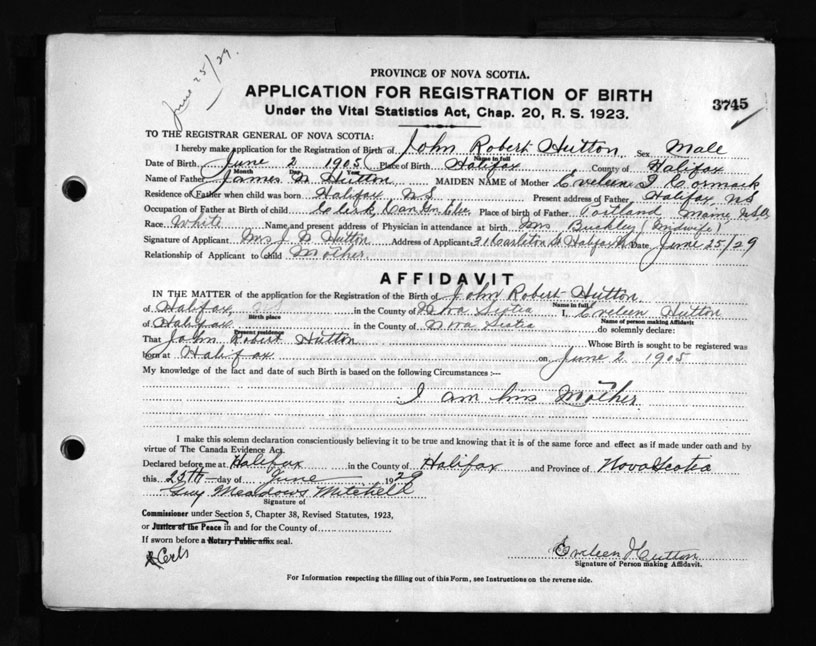 June 25/29.
PROVINCE OF NOVA SCOTIA.
APPLICATION FOR REGISTRATION OF BIRTH
3745
Under the Vital Statistics Act, Chap. 20, R. S. 1923.
TO THE REGISTRAR GENERAL OF NOVA SCOTIA:
I hereby make application for the Registration of Birth of John Robert Hutton Sex Male
Name in full
Date of Birth June 2 1905 Place of Birth Halifax County of Halifax
Month Day Year
Name of Father James D Hutton MAIDEN NAME of Mother Eveleen Cormack
Residence of Father when child was born Halifax NS Present address of Father Halifax, NS
Occupation of Father at Birth of child Clerk, Place of birth of Father Portland Maine
Race White Name and present address of Physician in attendance at birth Mrs Buckley (Midwife)
Signature of Applicant Mrs J D Hutton Address of Applicant 31 Carleton St Halifax Date June 25/29
Relationship of Applicant to child Mother
AFFIDAVIT
IN THE MATTER of the application for the Registration of the Birth of John Robert Hutton
Name in full
of Halifax in the County of Nova Scotia I, Eveleen Hutton
Birth place Name of person making Affidavit
of Halifax in the County of Nova Scotia do solemnly declare:
Present residence
That John Robert Hutton Whose Birth is sought to be registered was
born at Halifax on June 2 1905
My knowledge of the fact and date of such Birth is based on the following Circumstances:—
I am his Mother
I make this solemn declaration conscientiously believing it to be true and knowing that it is of the same force and effect as if made under oath and by
virtue of The Canada Evidence Act.
Declared before me at Halifax in the County of Halifax and Province of Nova Scotia
this 25th day of June 1929
Guy Meadows Mitchell
Signature of
Commissioner under Section 5, Chapter 38, Revised Statutes, 1923,
or Justice of the Peace in and for the County of
If sworn before a Notary Public affix seal.
Eveleen Hutton
Signature of Person making Affidavit.
For Information respecting the filling out of this Form, see Instructions on the reverse side.